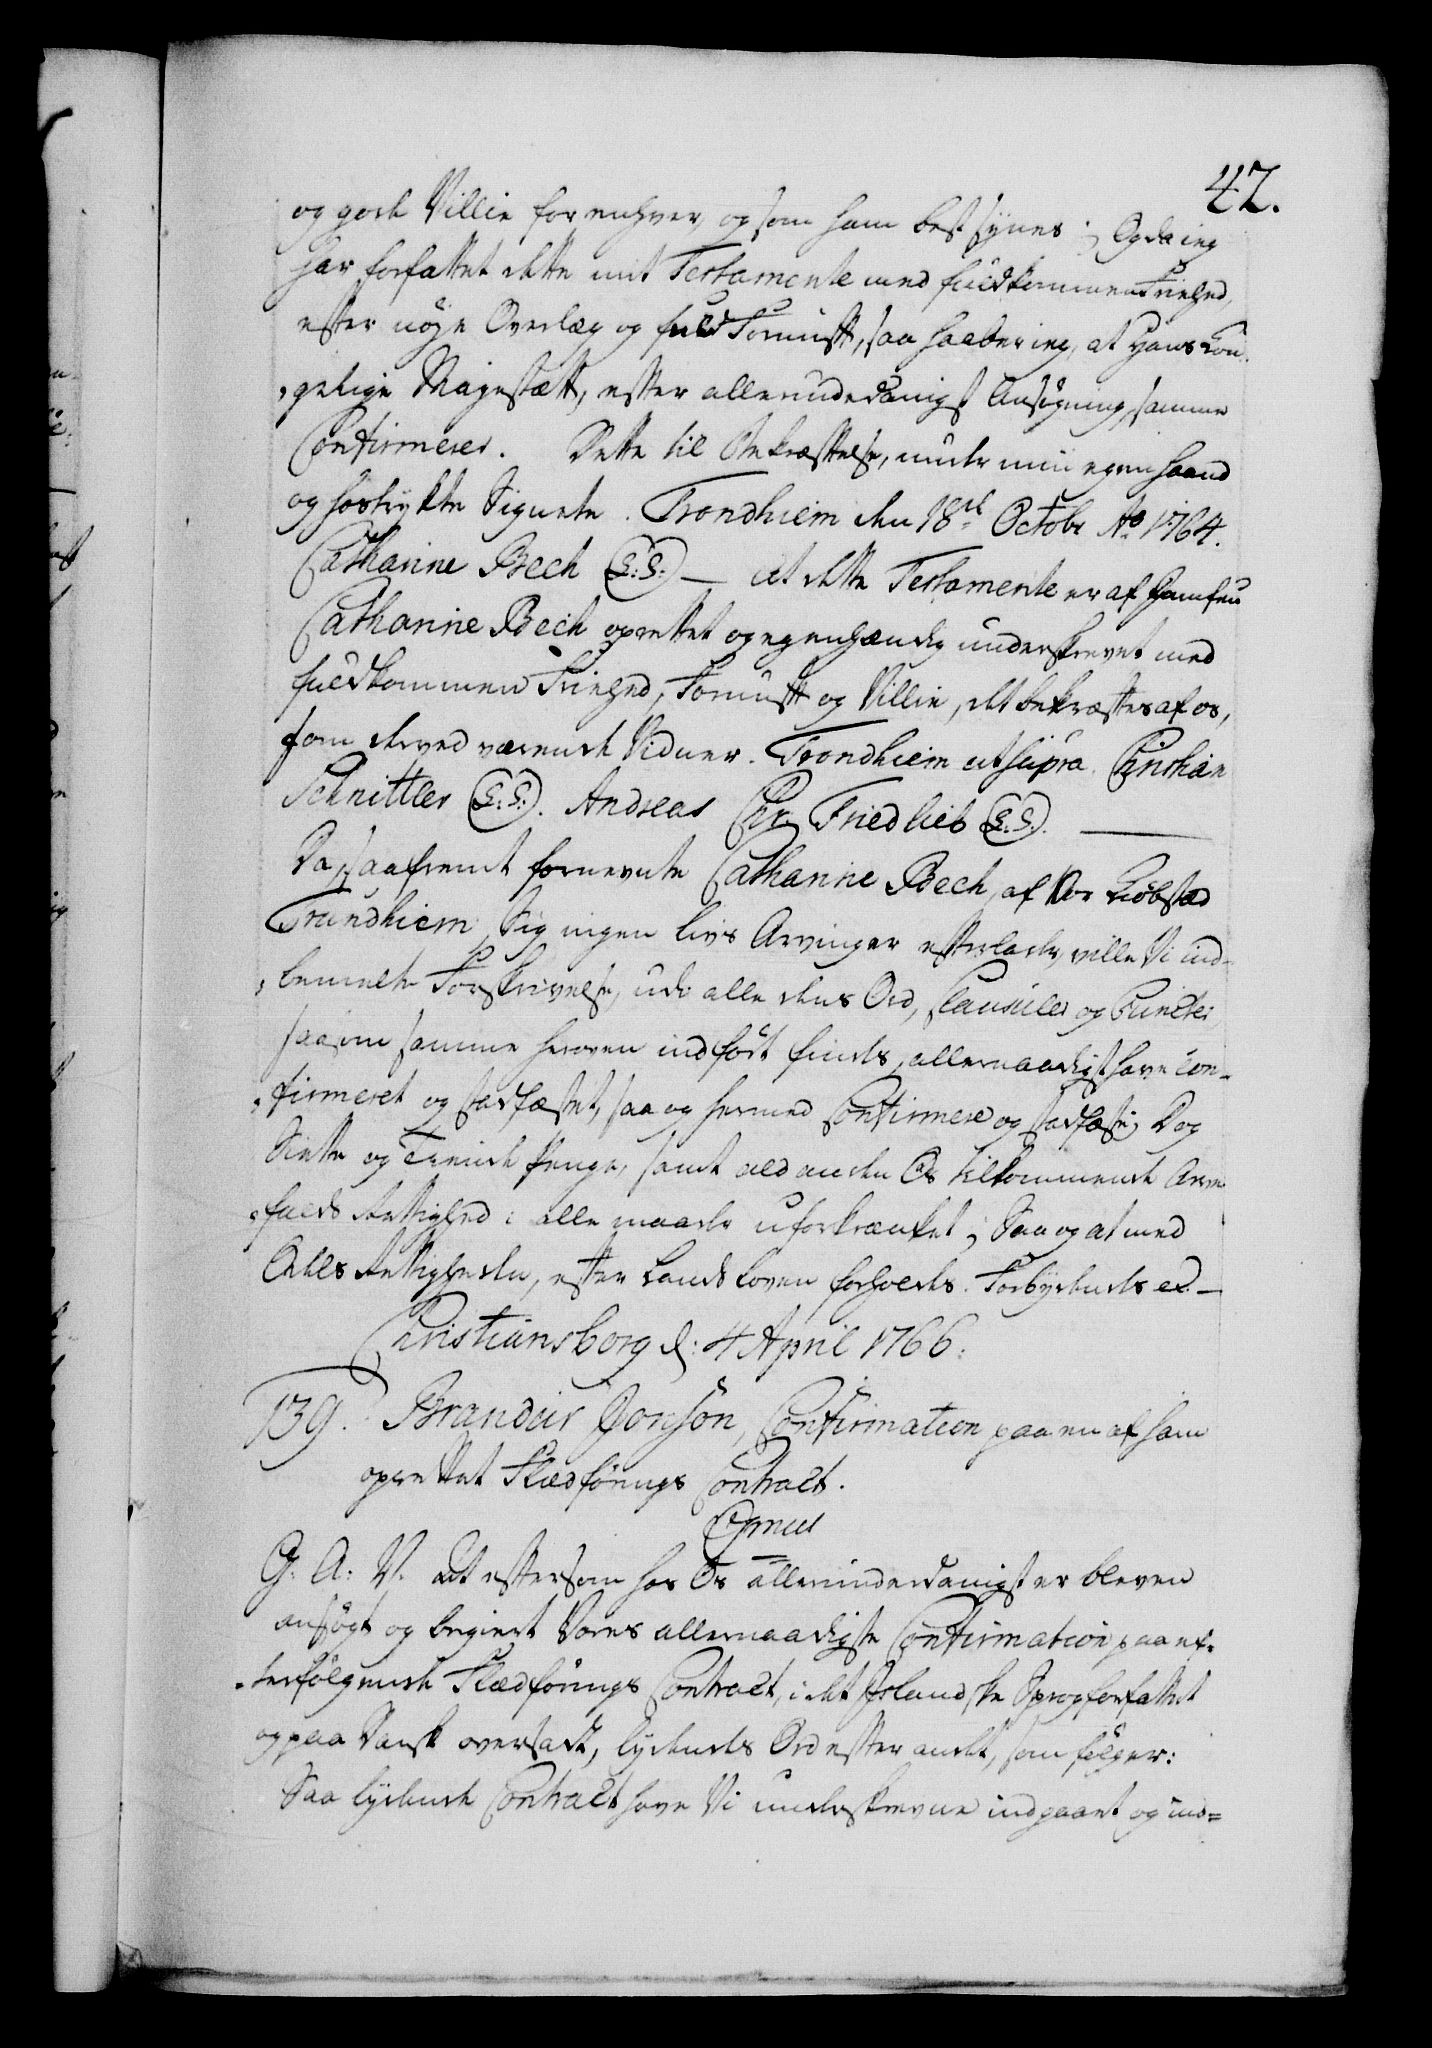 42.
og gode Villie for enhver, og som ham best synes; Og da ieg
har forfattet dette mit Testamente med fuldkommen Friehed,
efter nøje Overlæg og fuld Fornuft, saa haaber ieg, at Hans Kon-
gelige Majestætt, efter allerunderdanigst Ansøgning, samme
Confirmerer. Dette til Bekræftelse, under min egen Haand
og hostrykte Signete. Trondhiem den 18de Octobr Ao 1764.
Catharine Bech (L:S:) — at dette Testamente er af Jomfru
Catharine Bech oprettet og egenhændig underskrevet med
fuldkommen Friehed, Fornuft og Villie, det bekræftes af os,
som derved værende Vidner. Trondhiem ut supra. Christian
Schnittler (L:S:). Andreas Chr. Friedlieb (L.S.). —
Da, saafremt fornevnte Catharine Bech, af Vor Kiøbstæd
Trundhiem, Sig ingen livs Arvinger efterlader, ville Vi ind-
bemelte Forskrivelse, udi alle dens Ord, Clausuler og Puncter
saasom samme heroven indført findes, allernaadigst have con-
firmeret og stadfæstet, saa og hermed Confirmere og stadfæste; Dog
Siette og Tiende Penge, samt ald anden Os tilkommende Arve-
falds Rettighed i alle maader uforkrænket; Saa og at med
Odels Rettigheden, efter Lands Loven forholdes. Forbydendes etc. —
Christiansborg d: 4 April 1766.
139. Brandur Jonsön, Confirmation paa en af ham
oprettet Flædførings Contract.
Gratis
G. A: V. at eftersom hos Os allerunderdanigst er bleven
ansøgt og begiert Vores allernaadigste Confirmation paa ef-
terfølgende Flædførings Contract, i det Islandske Sprog forfattet
og paa Dansk oversadt, lydendes Ord efter andet, som følger:
Saa lydende Contract have Vi underskrevne indgaaet og ind=